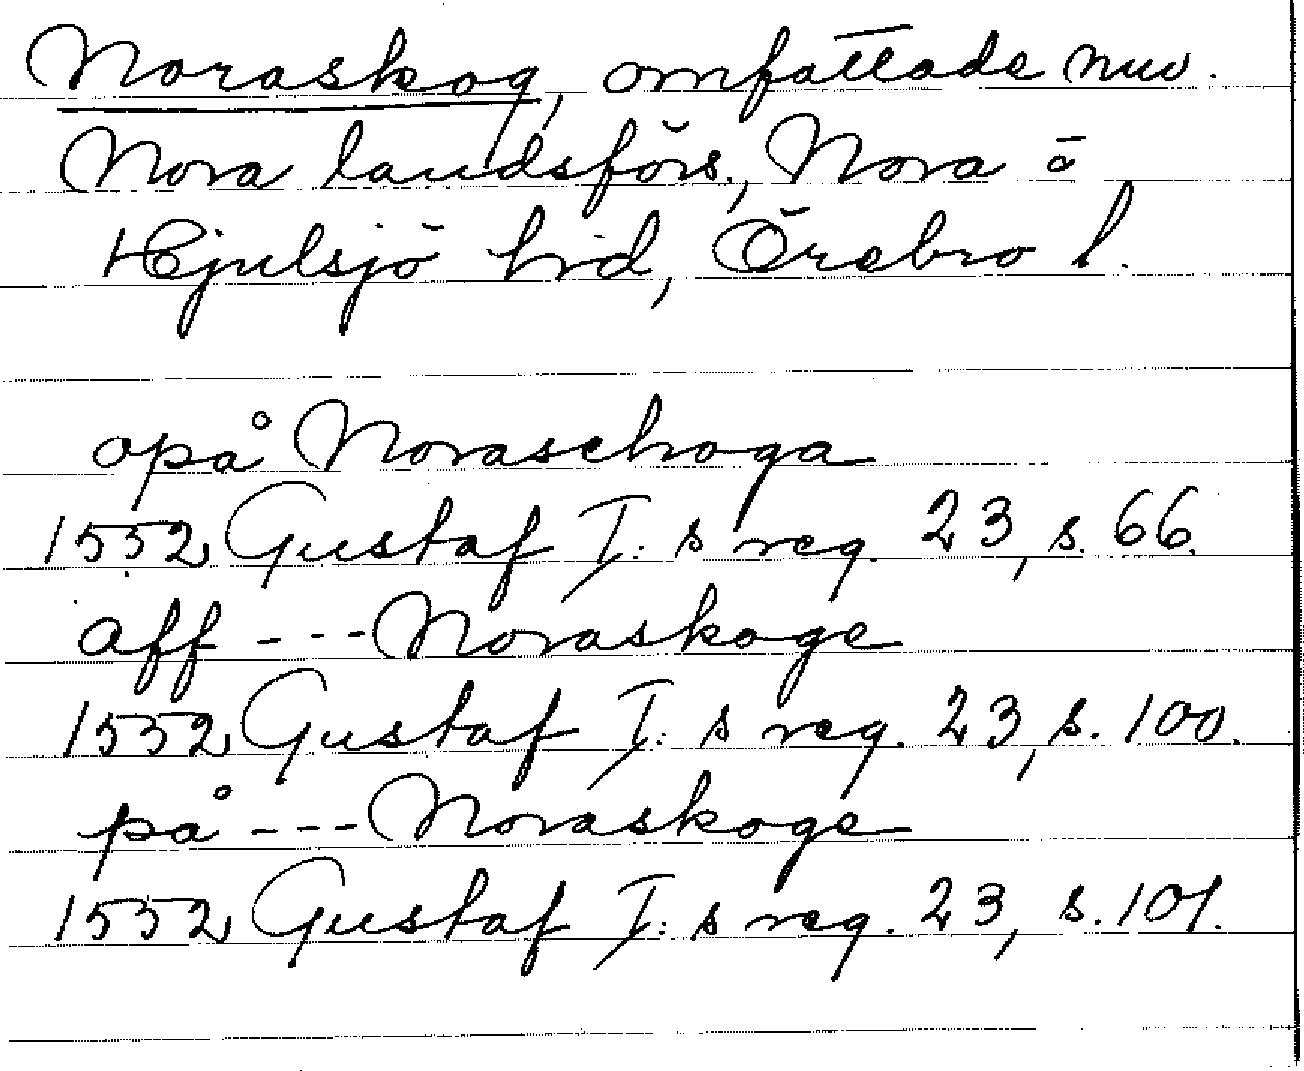 Noraskog, omfattade nuv.
Nora landsförs., Nora o
Hjulsjö hrd, Örebro l.
opå Noraschoga
1552 Gustaf I: s reg. 23, s. 66.
aff --- Noraskoge
1552 Gustaf I: s reg. 23, s. 100.
på --- Noraskoge
1552 Gustaf I: s reg. 23, s. 101.